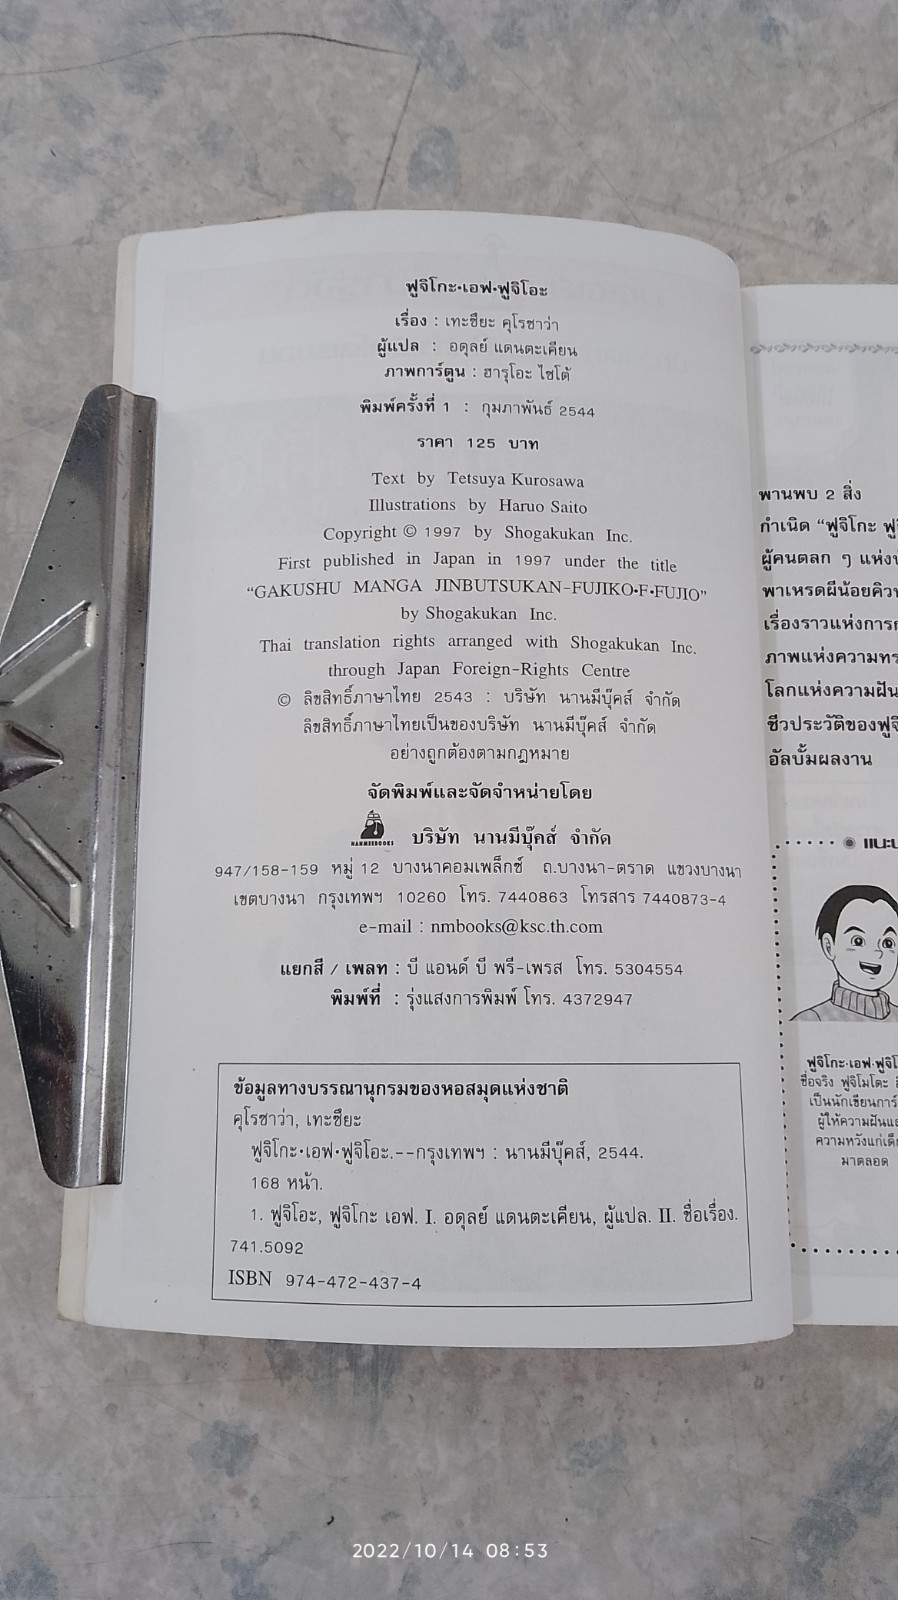 ฟูจิโกะ·เอฟ·ฟูจิโอะ
เรื่อง : เทะซึยะ คุโรซาว่า
ผู้แปล : อดุลย์ แดนตะเคียน
ภาพการ์ตูน : ฮารุโอะ ไซโต้
พิมพ์ครั้งที่ 1 : กุมภาพันธ์ 2544
ราคา 125 บาท
Text by Tetsuya Kurosawa
Illustrations by Haruo Saito
Copyright © 1997 by Shogakukan Inc.
First published in Japan in 1997 under the title
“GAKUSHU MANGA JINBUTSUKAN-FUJIKO·F·FUJIO”
by Shogakukan Inc.
Thai translation rights arranged with Shogakukan Inc.
through Japan Foreign-Rights Centre
© ลิขสิทธิ์ภาษาไทย 2543 : บริษัท นานมีบุ๊คส์ จำกัด
ลิขสิทธิ์ภาษาไทยเป็นของบริษัท นานมีบุ๊คส์ จำกัด
อย่างถูกต้องตามกฎหมาย
จัดพิมพ์และจัดจำหน่ายโดย
NANMEEBOOKS บริษัท นานมีบุ๊คส์ จำกัด
947/158-159 หมู่ 12 บางนาคอมเพล็กซ์ ถ.บางนา-ตราด แขวงบางนา
เขตบางนา กรุงเทพฯ 10260 โทร. 7440863 โทรสาร 7440873-4
e-mail : nmbooks@ksc.th.com
แยกสี / เพลท : บี แอนด์ บี พรี-เพรส โทร. 5304554
พิมพ์ที่ : รุ่งแสงการพิมพ์ โทร. 4372947
ข้อมูลทางบรรณานุกรมของหอสมุดแห่งชาติ
คุโรซาว่า, เทะซึยะ
ฟูจิโกะ·เอฟ·ฟูจิโอะ.--กรุงเทพฯ : นานมีบุ๊คส์, 2544.
168 หน้า.
1. ฟูจิโอะ, ฟูจิโกะ เอฟ. I. อดุลย์ แดนตะเคียน, ผู้แปล. II. ชื่อเรื่อง.
741.5092
ISBN 974-472-437-4
พานพบ 2 สิ่ง
กำเนิด “ฟูจิโกะ ฟูจิ
ผู้คนตลก ๆ แห่ง
พาเหรดผีน้อยคิว
เรื่องราวแห่งการ
ภาพแห่งความทร
โลกแห่งความฝัน
ชีวประวัติของฟูจิ
อัลบั้มผลงาน
แนะน
ฟูจิโกะ·เอฟ·ฟูจิ
ชื่อจริง ฟูจิโมโตะ
เป็นนักเขียนการ์
ผู้ให้ความฝันแล
ความหวังแก่เด็
มาตลอด
2022/10/14 08:53